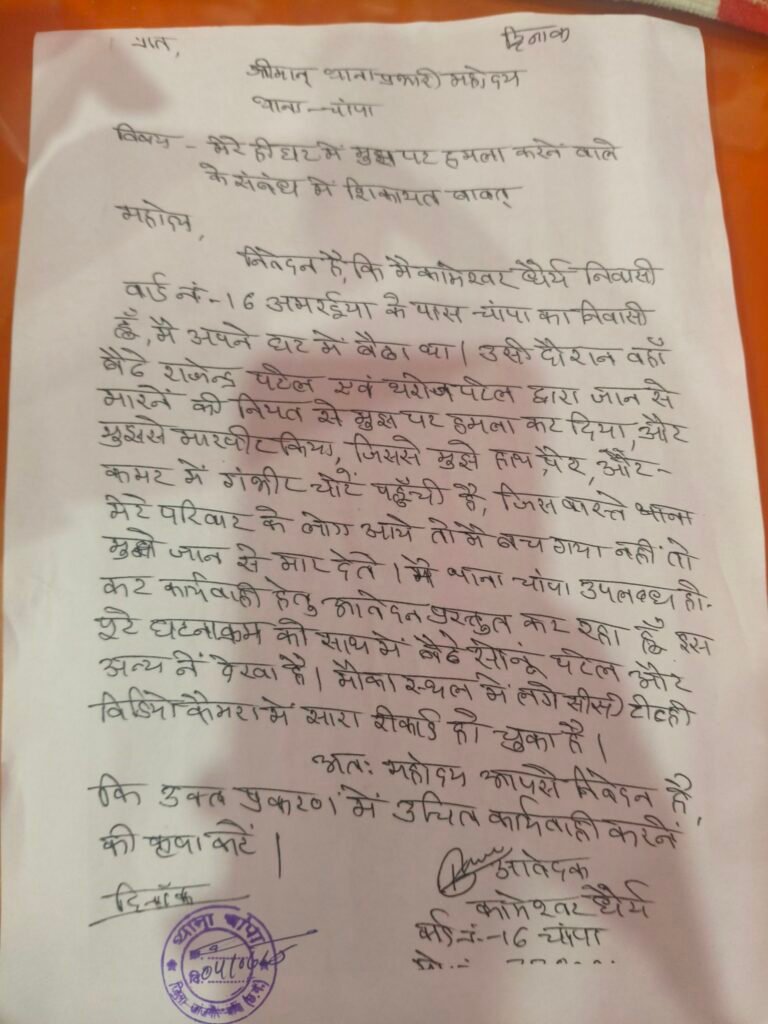 प्रति,
दिनांक
श्रीमान् थाना प्रभारी महोदय
थाना - चांपा
विषय - मेरे ही घर में मुझ पर हमला करने वाले
के संबंध में शिकायत बावत्
महोदय,
निवेदन है, कि मै कामेश्वर धैर्य निवासी
वार्ड नं.-16 अमरईया के पास चांपा का निवासी
हूँ, मै अपने घर में बैठा था। उसी दौरान वहाँ
बैठे राजेन्द्र पटेल एवं पटेल द्वारा जान से
मारनें की नियत से मुझ पर हमला कर दिया, और
मुझसे मारपीट किया, जिससे मुझे हाथ, पैर, और-
कमर में गंभीर चोटें पहुँची है, जिस वास्ते थाना
मेरे परिवार के लोग आये तो मै बच गया नहीं तो
मुझे जान से मार देते। मै थाना चांपा उपलब्ध हो-
कर कार्यवाही हेतु आवेदन प्रस्तुत कर रहा हूँ इस
पूरे घटनाक्रम को साथ में बैठे सोनू पटेल और
अन्य नें देखा है। मौका स्थल में लगे सीसी टीव्ही
विडियो कैमरा में सारा रीकार्ड हो चुका है।
अतः महोदय आपसे निवेदन है,
कि उक्त प्रकरण में उचित कार्यवाही करनें
की कृपा करें।
आवेदक
दिनाँक
कामेश्वर धैर्य
वार्ड नं.-16 चांपा
थाना चांपा